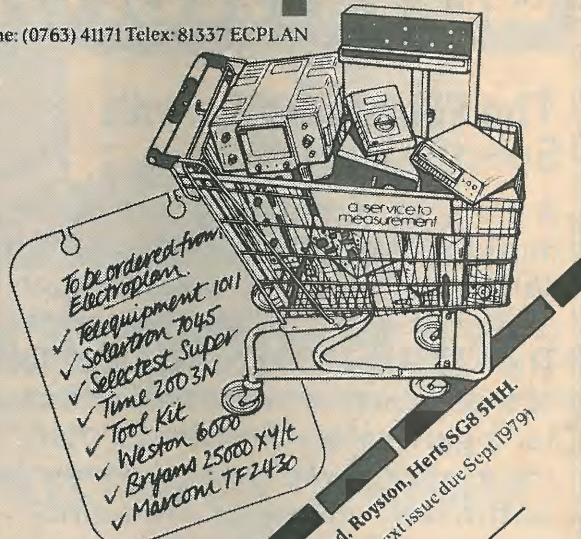 ne: (0763) 41171 Telex: 81337 ECPLAN
a service to
measurement
To be ordered from
Electroplan.
✓ Telequipment 1011
✓ Solartron 7045
✓ Selectest Super
✓ Time 2003N
✓ Tool Kit
✓ Weston 6000
✓ Bryans 25000 XY/t
✓ Marconi TF2430
d, Royston, Herts SG8 5HH.
ext issue due Sept 1979)